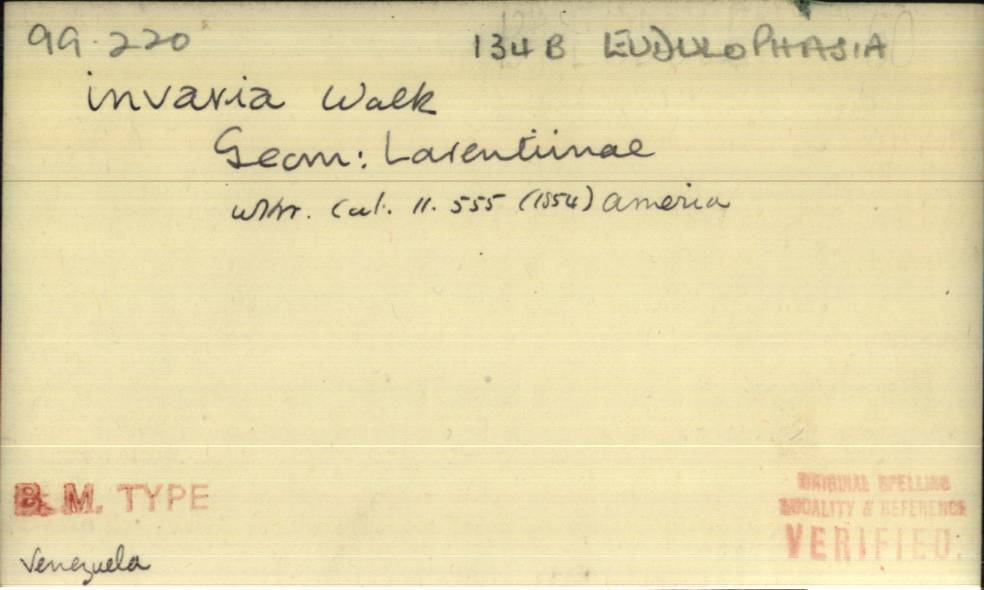 99.220 134 B EUDULOPHASIA
invaria Walk
Geom: Larentiinae
Cat. 11. 555 (1854) America
B. M. TYPE
ORIGINAL SPELLING
LOCALITY & REFERENCE
VERIFIED.
Venezuela